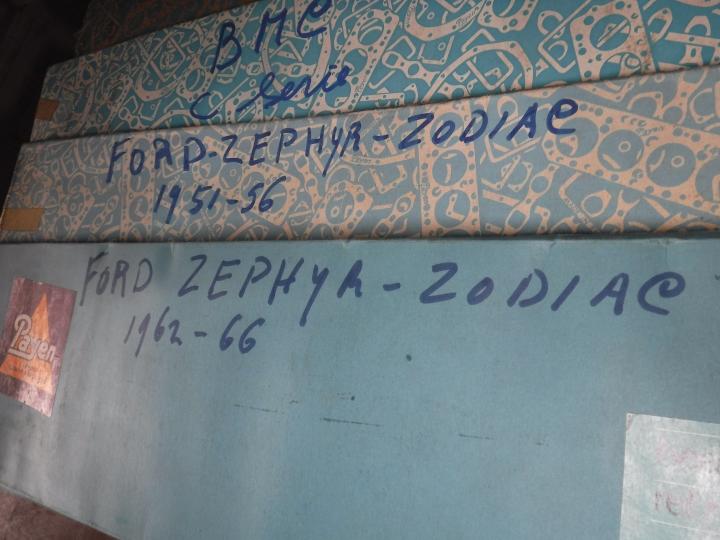 BMC
C Serie
FORD-ZEPHYR-ZODIAC
1951-56
FORD ZEPHYR-ZODIAC
1962-66
Payen